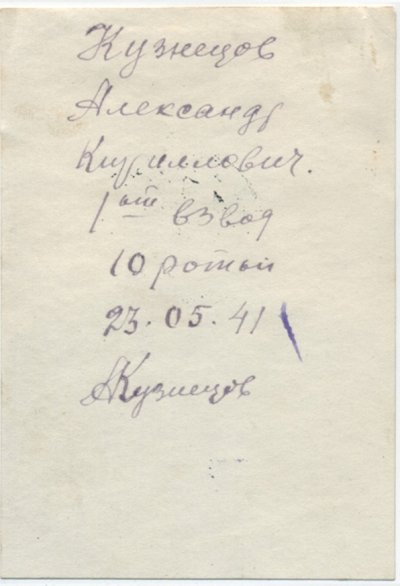 Кузнецов
Александр
Кириллович.
1ый взвод
10 роты
23.05.41
АКузнецов